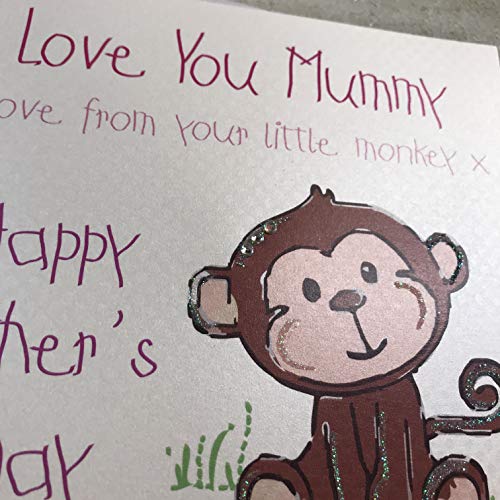 Love You Mummy
ove from your little monkey x
Happy
ther's
Day